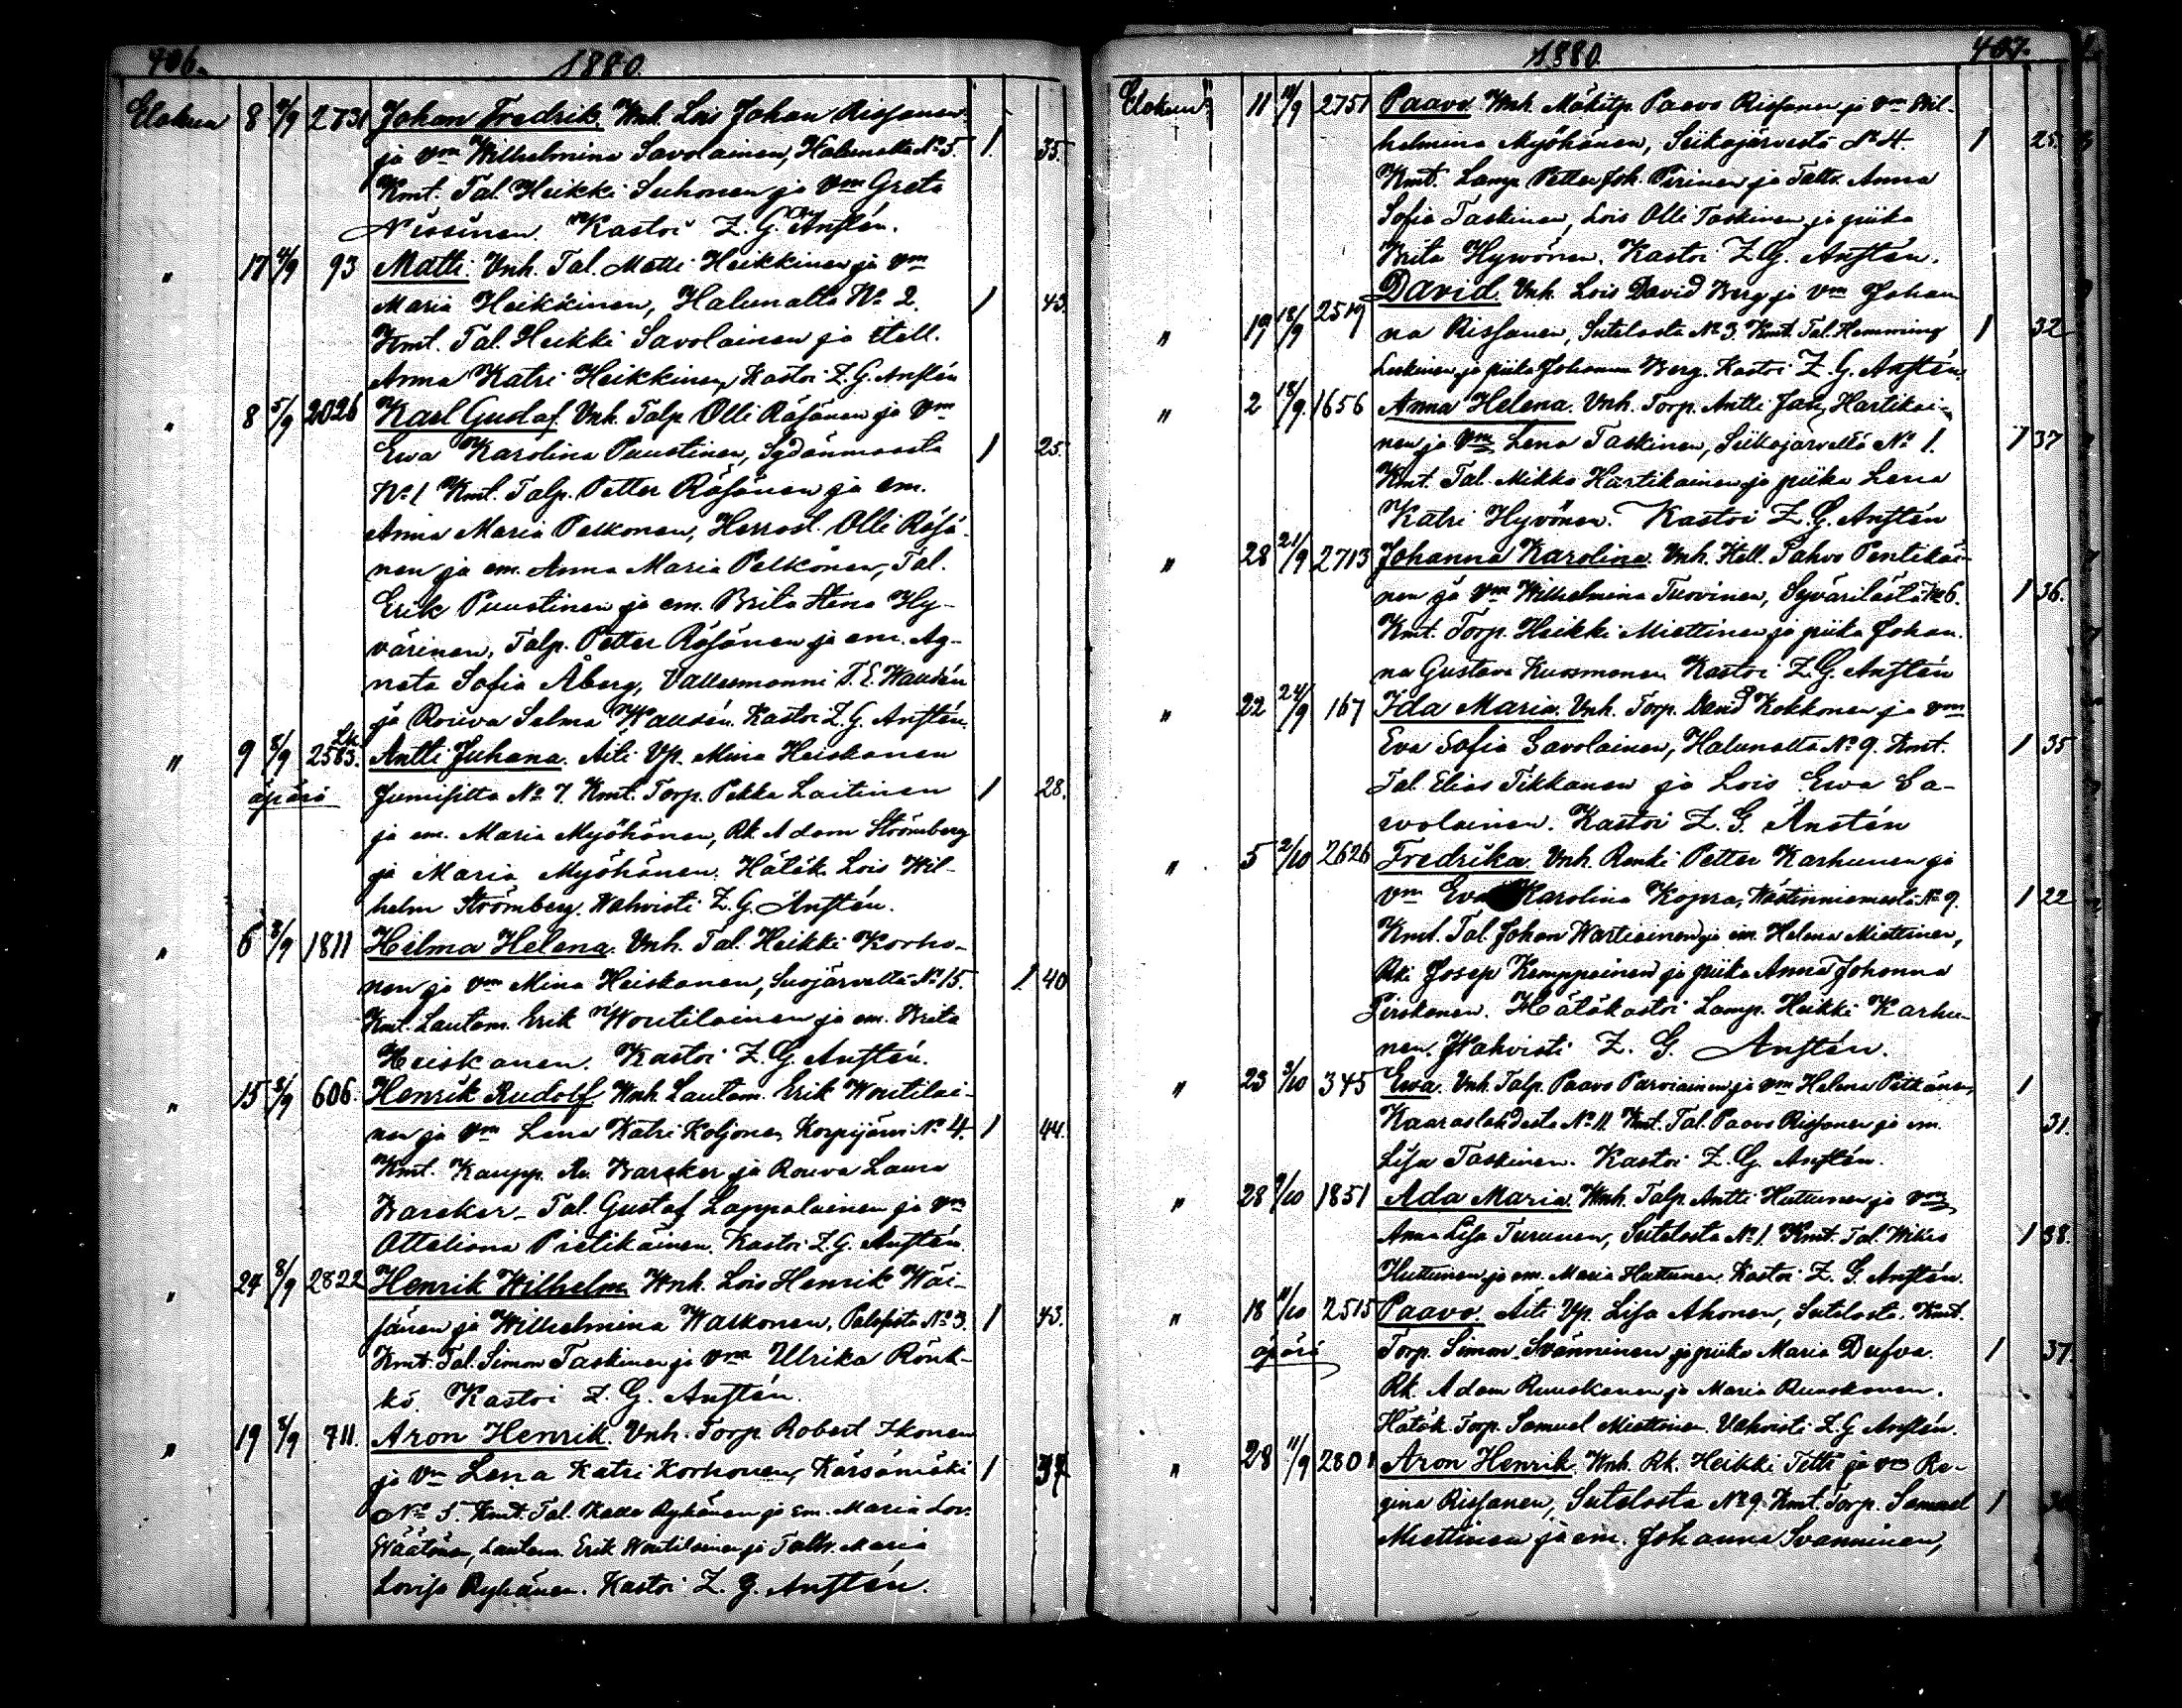 406.
1880.
Elokuu 8 4/9 2731 Johan Fredrik. Vnh. Lois Johan Rissanen
ja vm Wilhelmina Savolainen, Halunalta No 5. 1. 35.
Kmt. Tal. Heikki Suhonen ja vm Greta
Nissinen. Kastoi Z. G. Ansten.
" 17 4/9 93 Matti. Vnh. Tal. Matti Heikkinen ja vm
Maria Heikkinen, Halunalta No 2. 1 43.
Kmt. Tal. Heikki Savolainen ja itell.
Anna Katri Heikkinen, Kastoi Z. G. Anstén
" 8 5/9 2026 Karl Gustaf. Vnh. Talp. Olli Räsänen ja vm
Ewa Karolina Puustinen, Sydänmaasta 1 25.
No 1 Kmt. Talp. Petter Räsänen ja em.
Anna Maria Pelkonen, Herrast. Olli Räsä-
nen ja em. Anna Maria Pelkonen, Tal.
Erik Puustinen ja em. Brita Stena Hy-
värinen, Talp. Petter Räsänen ja em. Ag-
neta Sofia Åberg, Vallesmanni T. E. Wandén
ja Rouva Selma Wandén. Kastoi Z. G. Anstén.
" 9 8/9 Lk. 2583. Antti Juhana. Äiti Vp. Mina Heiskanen
äpärä Jumifilta No 7. Kmt. Torp. Pekka Laitinen 1 28.
ja em. Maria Myöhänen, Rk. Adam Strömberg
ja Maria Myöhänen. Hätäk. Lois Wil-
helm Strömberg. Wahvisti Z. G. Anstén.
" 6 8/9 1811 Hilma Helena. Vnh. Tal. Heikki Korho-
nen ja vm Mina Heiskanen, Suojärveltä No 15. 1 40
Kmt. Lautam. Erik Woutilainen ja em. Brita
Heiskanen. Kastoi Z. G. Anstén.
" 15 8/9 606. Henrik Rudolf. Wnh. Lautam. Erik Woutilai-
nen ja vm Lena Katri Koljonen, Korpijärvi No 4. 1 44.
Kmt. Kaupp. Barcker ja Rouva Laura
Barcker - Tal. Gustaf Lappalainen ja vm
Otteliana Pietikäinen. Kastoi Z. G. Anstén.
" 24 8/9 2822 Henrik Wilhelm. Wnh. Lois Henrik Wäi-
sänen ja Wilhelmina Walkonen, No 3. 1 43.
Kmt. Tal. Simon Taskinen ja vm Ulrika Rönk-
kö. Kastoi Z. G. Anstén.
" 19 8/9 711. Aron Henrik. Vnh. Torp. Robert Ikonen
ja vm Lena Katri Korhonen, Kärsämäki 1 37
No 5. Kmt. Tal. Kalle Ryhänen ja em. Maria Lov.
Wäätänen, Lautam. Erik Woutilainen ja Taltr. Maria
Lovisa Ryhänen. Kastoi Z. G. Anstén.
1880.
407.
Elokuu 11 2751 Paavo. Vnh. Mäkitp. Paavo Rissanen ja vm Wil-
helmina Myöhänen, Siikajärvestä No 4 1 25.
Kmt. Lamp. Petter Joh. Pirinen ja Taltr. Anna
Sofia Taskinen, Lois Olli Taskinen ja piika
Brita Hyvönen. Kastoi Z. G. Anstén.
" 19 18/9 2519 David. Vnh. Lois David Berg ja vm Johan-
na Rissanen, Sutelasta No 3. Kmt. Tal. Hemming 1 32
Leskinen ja piika Johanna Berg. Kastoi Z. G. Anstén.
" 2 18/9 1656 Anna Helena. Vnh. Torp. Antti Joh. Hartikai-
nen ja vm Lena Taskinen, Siikajärveltä No 1. 1 37
Kmt. Tal. Mikko Hartikainen ja piika Lena
Katri Hyvönen. Kastoi Z. G. Anstén
" 28 21/9 2713 Johanna Karolina. Vnh. Itell. Pahvo Pentikäi-
nen ja vm Wilhelmina Tuovinen, Syvärilästä No 6. 1 36.
Kmt. Torp. Heikki Miettinen ja piika Johan-
na Gustava Kuosmonen. Kastoi Z. G. Anstén
" 22 24/9 167 Ida Maria. Vnh. Torp. David Kokkonen ja vm
Eva Sofia Savolainen, Halunalta No 9. Kmt. 1 35
Tal. Elias Tikkanen ja Lois Ewa Sa-
volainen. Kastoi Z. G. Anstén
" 5 2/10 2626 Fredrika. Vnh. Renki Petter Karhunen ja
vm Eva Karolina Kopra, Västinniemestä No 9. 1 22
Kmt. Tal. Johan Wartiainen ja em. Helena Miettinen,
Rki Josep Kemppainen ja piika Anna Johanna
Pirskanen. Hätäkastoi Lamp. Heikki Karhu-
nen. Wahvisti Z. G. Anstén.
" 23 3/10 345 Ewa. Vnh. Talp. Paavo Parviainen ja vm Helena Pitkänen, 1
Kaaraslahdesta No 11. Kmt. Tal. Paavo Rissanen ja em. 31.
Lisa Taskinen. Kastoi Z. G. Anstén.
" 28 9/10 1851 Ada Maria. Wnh. Talp. Antti Huttunen ja vm
Anna Lisa Turunen, Sutelasta No 1. Kmt. Tal. 1 38.
Huttunen ja em. Maria Huttunen. Kastoi Z. G. Anstén.
" 18 11/10 2515 Paavo. Äiti Vp. Lisa Ahonen, Sutelasta. Kmt.
äpärä Torp. Simon Svänninen ja piika Maria Dufva. 1 37.
Rk. Adam Ruuskanen ja Maria Ruuskanen.
Hätäk. Torp. Samuel Miettinen. Vahvisti Z. G. Anstén.
" 28 11/9 2801 Aron Henrik. Wnh. Rk. Heikki Titti ja vm Re-
gina Rissanen, Sutelasta No 9. Kmt. Torp. Samuel 1
Miettinen ja em. Johanna Svanninen,